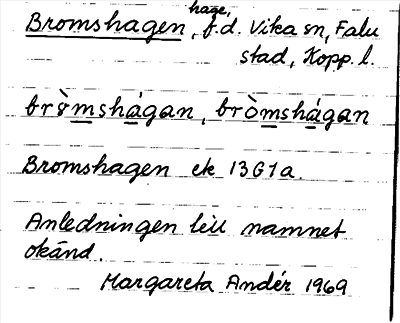 Bromshagen, hage, f.d. Vika sn, Falu
stad, Kopp. l.
bròmshágan, bròmshágan
Bromshagen ek 13G1a.
Anledningen till namnet
okänd.
Margareta Andér 1969